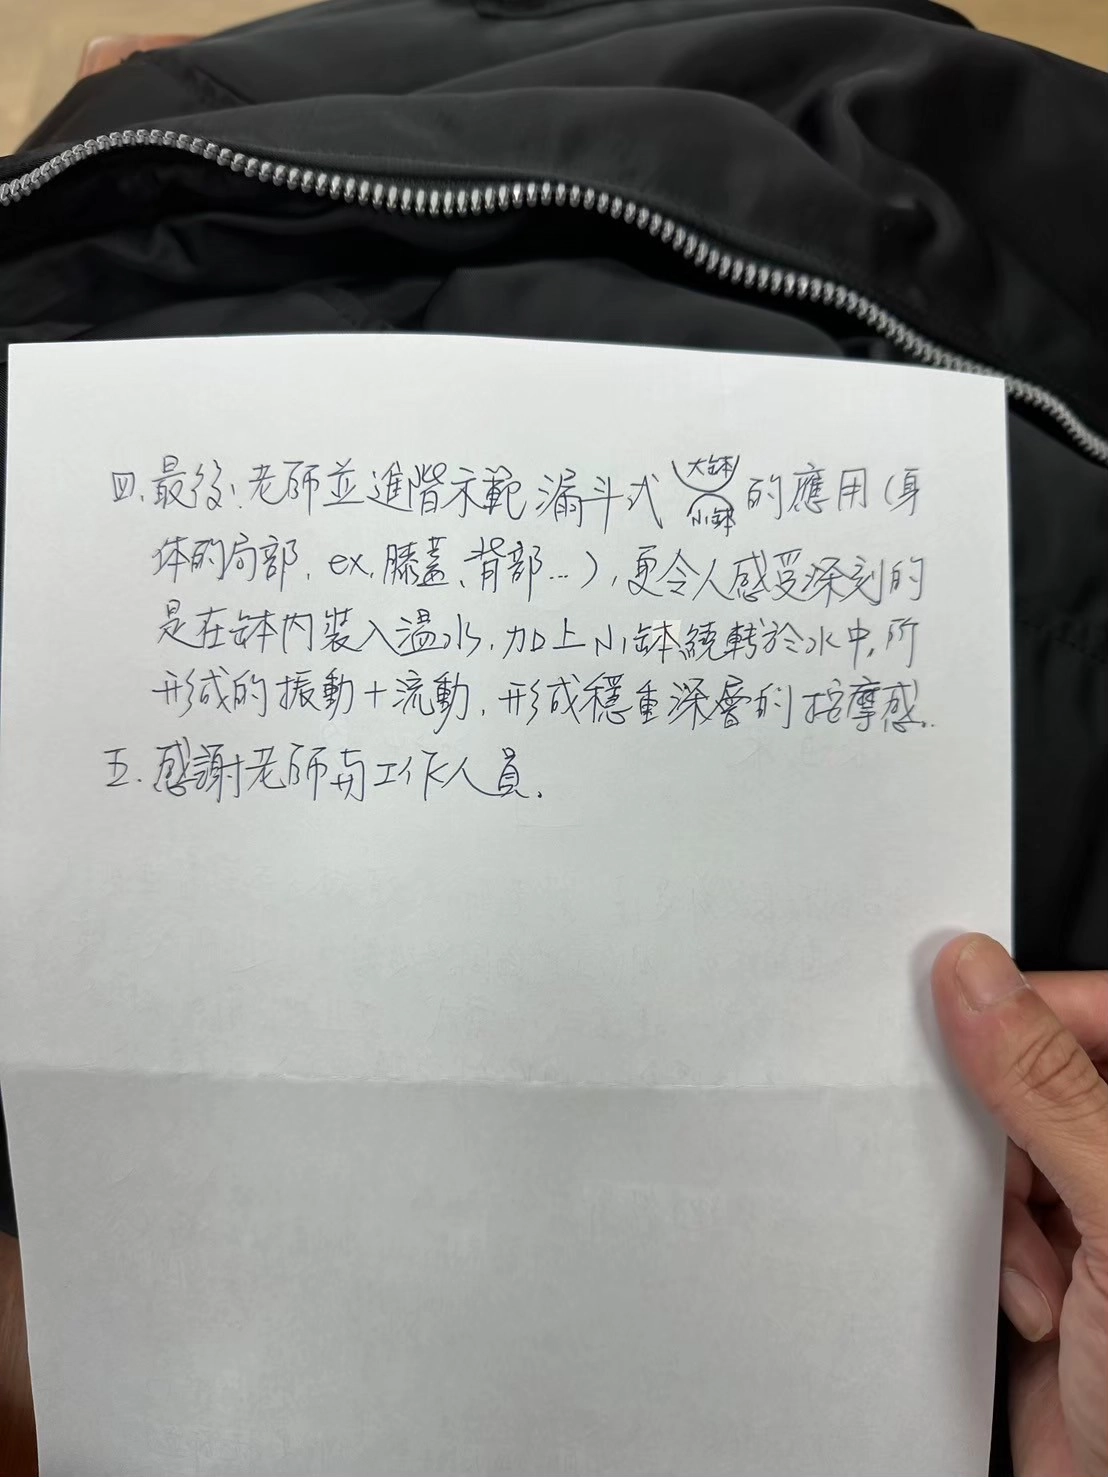 四.最後,老師並進階示範漏斗式 大缽 小缽 的應用(身
体的局部,ex,膝蓋、背部...),更令人感受深刻的
是在缽內裝入溫水,加上小缽繞轉於水中,所
形成的振動+流動,形成穩重深層的按摩感.
五.感謝老師与工作人員.